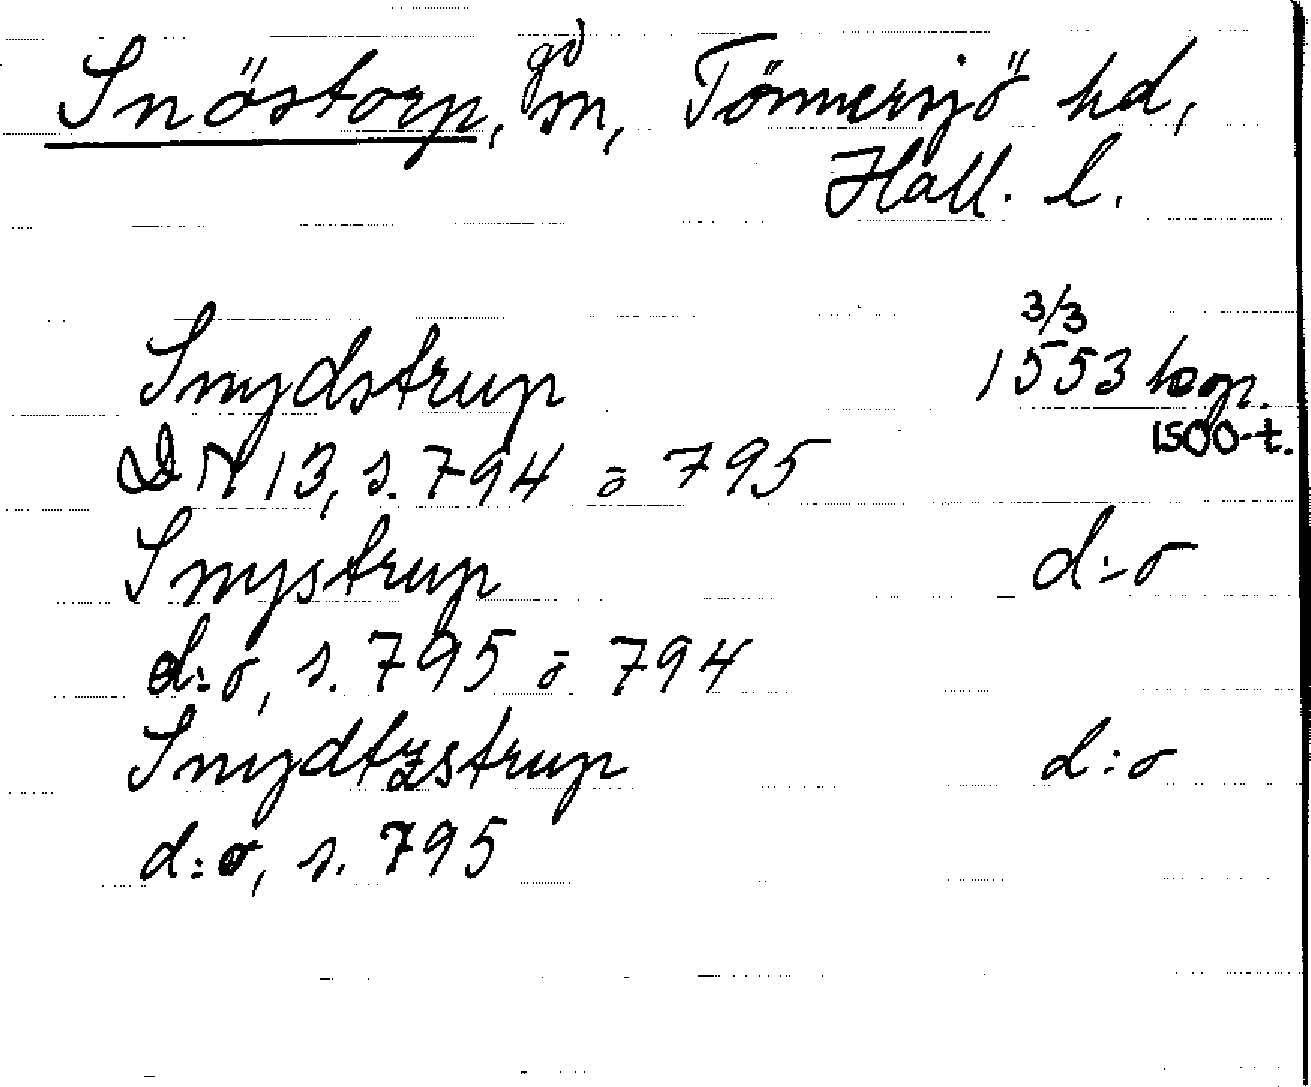 Snöstorp, gd sn, Tönnersjö hd,
Hall. l.
Snydstrup 3/3 1553 kop. 1500-t.
DN 13, s. 794 o 795
Snystrup d:o
d:o, s. 795 o 794
Snydtzstrup d:o
d:o, s. 795